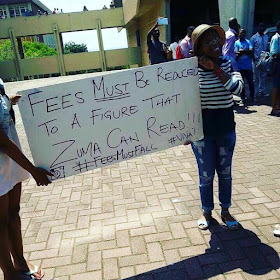 FEES MUST BE REDUCED
TO A FIGURE THAT
ZUMA CAN READ!!!
#FEESMUSTFALL #VIVA